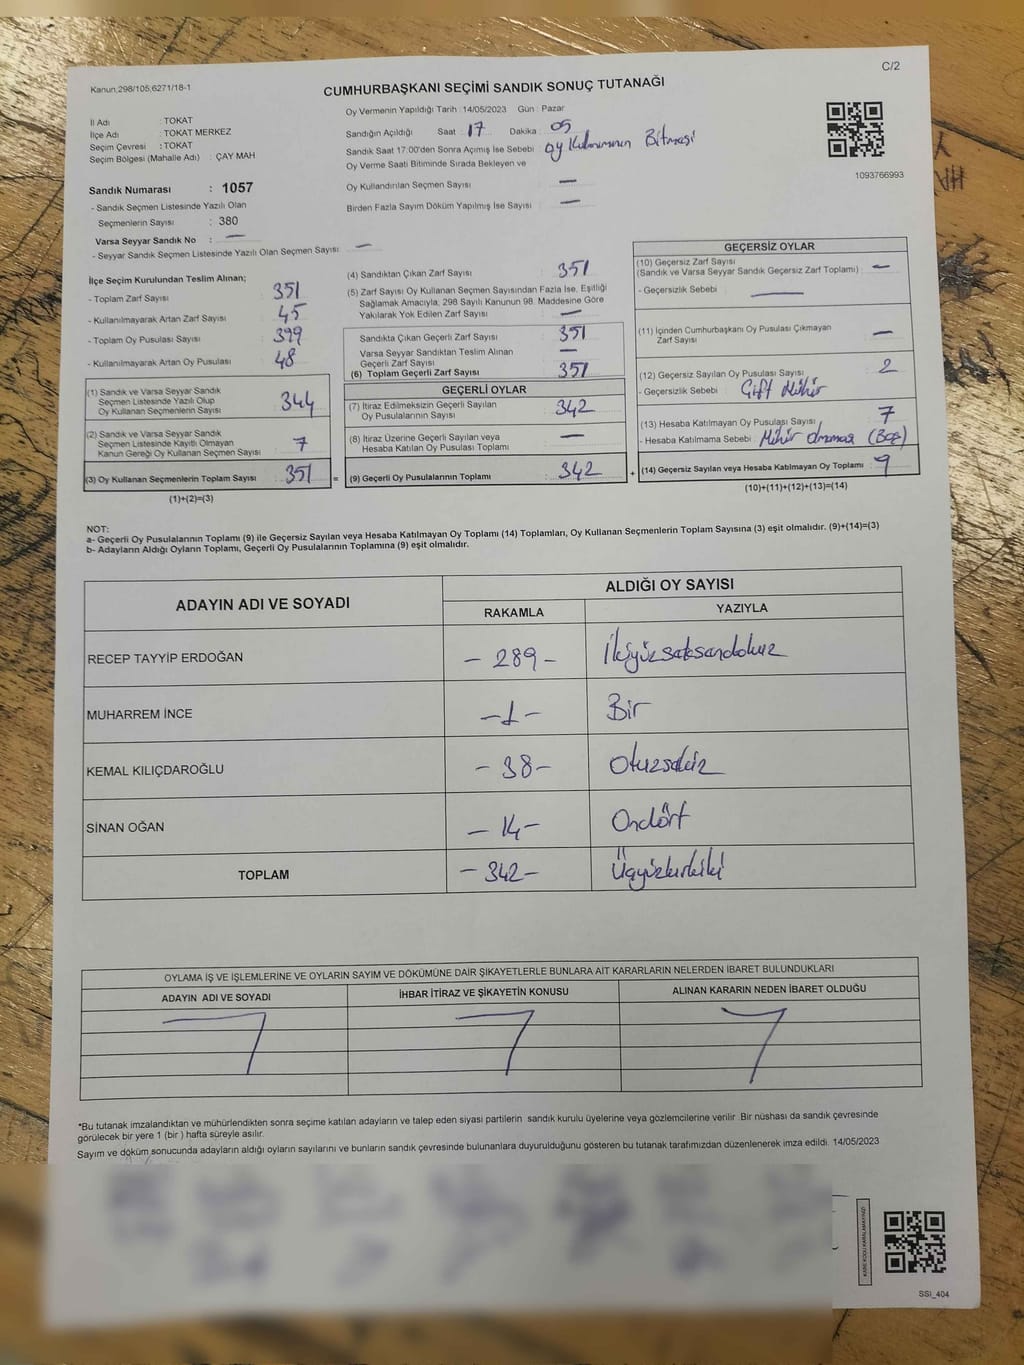 C/2
Kanun,298/105;6271/18-1
CUMHURBAŞKANI SEÇİMİ SANDIK SONUÇ TUTANAĞI
İl Adı : TOKAT
İlçe Adı : TOKAT MERKEZ
Seçim Çevresi : TOKAT
Seçim Bölgesi (Mahalle Adı) : ÇAY MAH
Sandık Numarası : 1057
- Sandık Seçmen Listesinde Yazılı Olan
Seçmenlerin Sayısı : 380
Varsa Seyyar Sandık No : —
- Seyyar Sandık Seçmen Listesinde Yazılı Olan Seçmen Sayısı : —
Oy Vermenin Yapıldığı Tarih : 14/05/2023 Gün : Pazar
Sandığın Açıldığı Saat : 17 Dakika : 05
Sandık Saat 17:00'den Sonra Açılmış İse Sebebi : Oy Kullanımının Bitmesi
Oy Verme Saati Bitiminde Sırada Bekleyen ve
Oy Kullandırılan Seçmen Sayısı : —
Birden Fazla Sayım Döküm Yapılmış İse Sayısı : —
1093766993
İlçe Seçim Kurulundan Teslim Alınan;
- Toplam Zarf Sayısı : 351
- Kullanılmayarak Artan Zarf Sayısı : 45
- Toplam Oy Pusulası Sayısı : 399
- Kullanılmayarak Artan Oy Pusulası : 48
(1) Sandık ve Varsa Seyyar Sandık
Seçmen Listesinde Yazılı Olup
Oy Kullanan Seçmenlerin Sayısı : 344
(2) Sandık ve Varsa Seyyar Sandık
Seçmen Listesinde Kayıtlı Olmayan
Kanun Gereği Oy Kullanan Seçmen Sayısı : 7
(3) Oy Kullanan Seçmenlerin Toplam Sayısı : 351
(1)+(2)=(3)
(4) Sandıktan Çıkan Zarf Sayısı : 351
(5) Zarf Sayısı Oy Kullanan Seçmen Sayısından Fazla İse, Eşitliği
Sağlamak Amacıyla, 298 Sayılı Kanunun 98. Maddesine Göre
Yakılarak Yok Edilen Zarf Sayısı : —
Sandıkta Çıkan Geçerli Zarf Sayısı : 351
Varsa Seyyar Sandıktan Teslim Alınan
Geçerli Zarf Sayısı : —
(6) Toplam Geçerli Zarf Sayısı : 351
GEÇERLİ OYLAR
(7) İtiraz Edilmeksizin Geçerli Sayılan
Oy Pusulalarının Sayısı : 342
(8) İtiraz Üzerine Geçerli Sayılan veya
Hesaba Katılan Oy Pusulası Toplamı : —
= (9) Geçerli Oy Pusulalarının Toplamı : 342 +
GEÇERSİZ OYLAR
(10) Geçersiz Zarf Sayısı
(Sandık ve Varsa Seyyar Sandık Geçersiz Zarf Toplamı) : —
- Geçersizlik Sebebi : —
(11) İçinden Cumhurbaşkanı Oy Pusulası Çıkmayan
Zarf Sayısı : —
(12) Geçersiz Sayılan Oy Pusulası Sayısı : 2
- Geçersizlik Sebebi : Çift Mühür
(13) Hesaba Katılmayan Oy Pusulası Sayısı : 7
- Hesaba Katılmama Sebebi : Mühür olmaması (Boş)
(14) Geçersiz Sayılan veya Hesaba Katılmayan Oy Toplamı : 9
(10)+(11)+(12)+(13)=(14)
NOT:
a- Geçerli Oy Pusulalarının Toplamı (9) ile Geçersiz Sayılan veya Hesaba Katılmayan Oy Toplamı (14) Toplamları, Oy Kullanan Seçmenlerin Toplam Sayısına (3) eşit olmalıdır. (9)+(14)=(3)
b- Adayların Aldığı Oyların Toplamı, Geçerli Oy Pusulalarının Toplamına (9) eşit olmalıdır.
ADAYIN ADI VE SOYADI ALDIĞI OY SAYISI
RAKAMLA YAZIYLA
RECEP TAYYİP ERDOĞAN - 289 - İkiyüzseksendokuz
MUHARREM İNCE - 1 - Bir
KEMAL KILIÇDAROĞLU - 38 - Otuzsekiz
SİNAN OĞAN - 14 - Ondört
TOPLAM - 342 - Üçyüzkırkiki
OYLAMA İŞ VE İŞLEMLERİNE VE OYLARIN SAYIM VE DÖKÜMÜNE DAİR ŞİKAYETLERLE BUNLARA AİT KARARLARIN NELERDEN İBARET BULUNDUKLARI
ADAYIN ADI VE SOYADI İHBAR İTİRAZ VE ŞİKAYETİN KONUSU ALINAN KARARIN NEDEN İBARET OLDUĞU
*Bu tutanak imzalandıktan ve mühürlendikten sonra seçime katılan adayların ve talep eden siyasi partilerin sandık kurulu üyelerine veya gözlemcilerine verilir. Bir nüshası da sandık çevresinde
görülecek bir yere 1 (bir ) hafta süreyle asılır.
Sayım ve döküm sonucunda adayların aldığı oyların sayılarını ve bunların sandık çevresinde bulunanlara duyurulduğunu gösteren bu tutanak tarafımızdan düzenlenerek imza edildi. 14/05/2023
KARE KODU KARALAMAYINIZ!
SSI_404